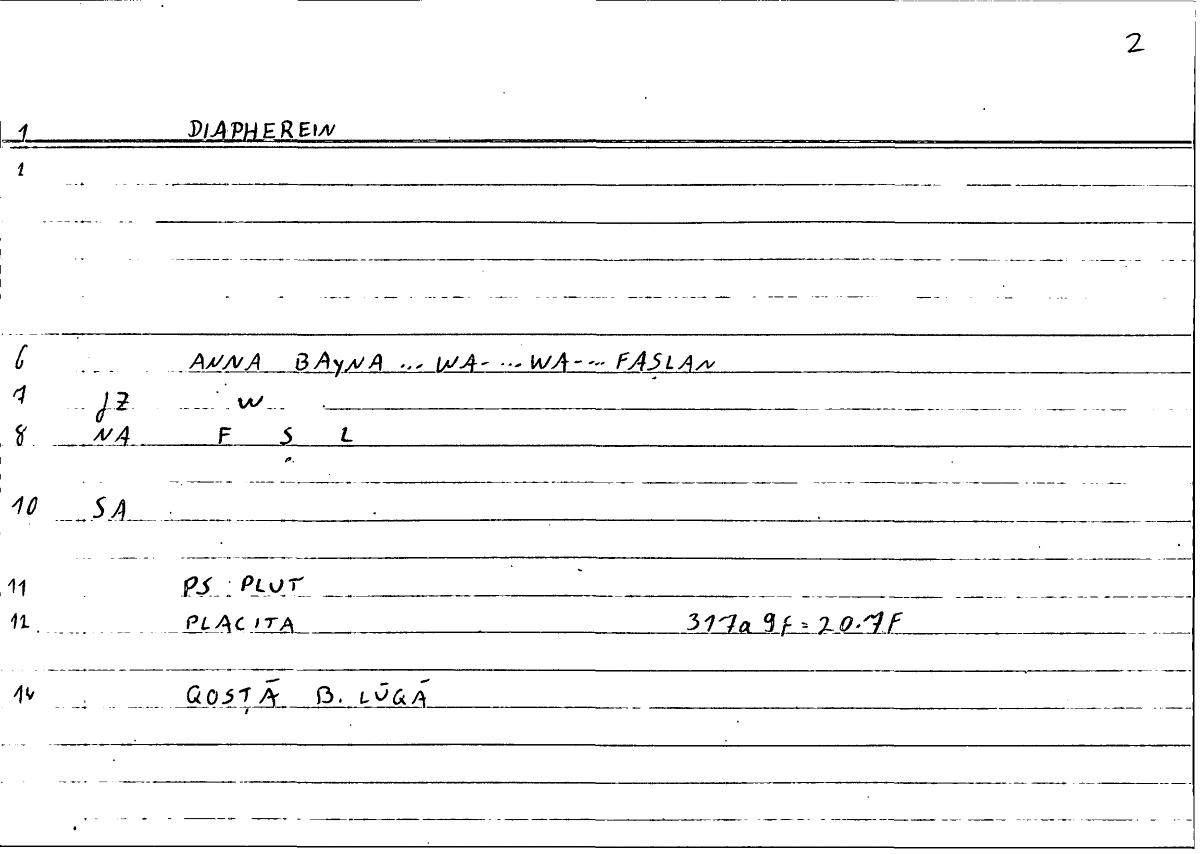 2
1 DIAPHEREIN
1
6 ANNA BAYNA ... WA- ... WA-... FAṢLAN
7 JZ W
8 NA F Ṣ L
10 SA
11 PS PLUT
12 PLACITA 317a 9f = 20.7F
14 QOSṬĀ B. LŪQĀ